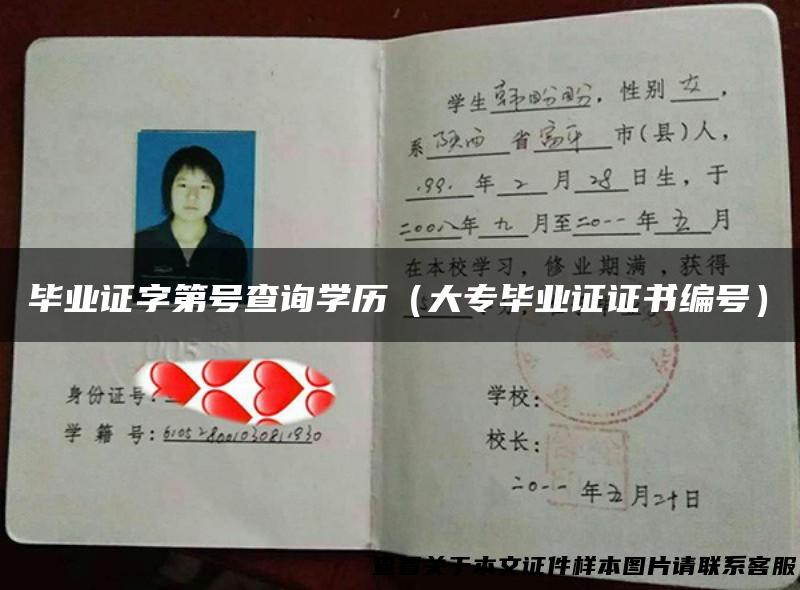 学生韩盼盼，性别女，
系陕西省富平市(县)人，
1991年2月28日生，于
二00八年九月至二0一一年五月
在本校学习，修业期满，获得
毕业证字第号查询学历（大专毕业证证书编号）
身份证号：
学籍号：
学校：
校长：
二0一一年五月二十日
查看关于本文证件样本图片请联系客服